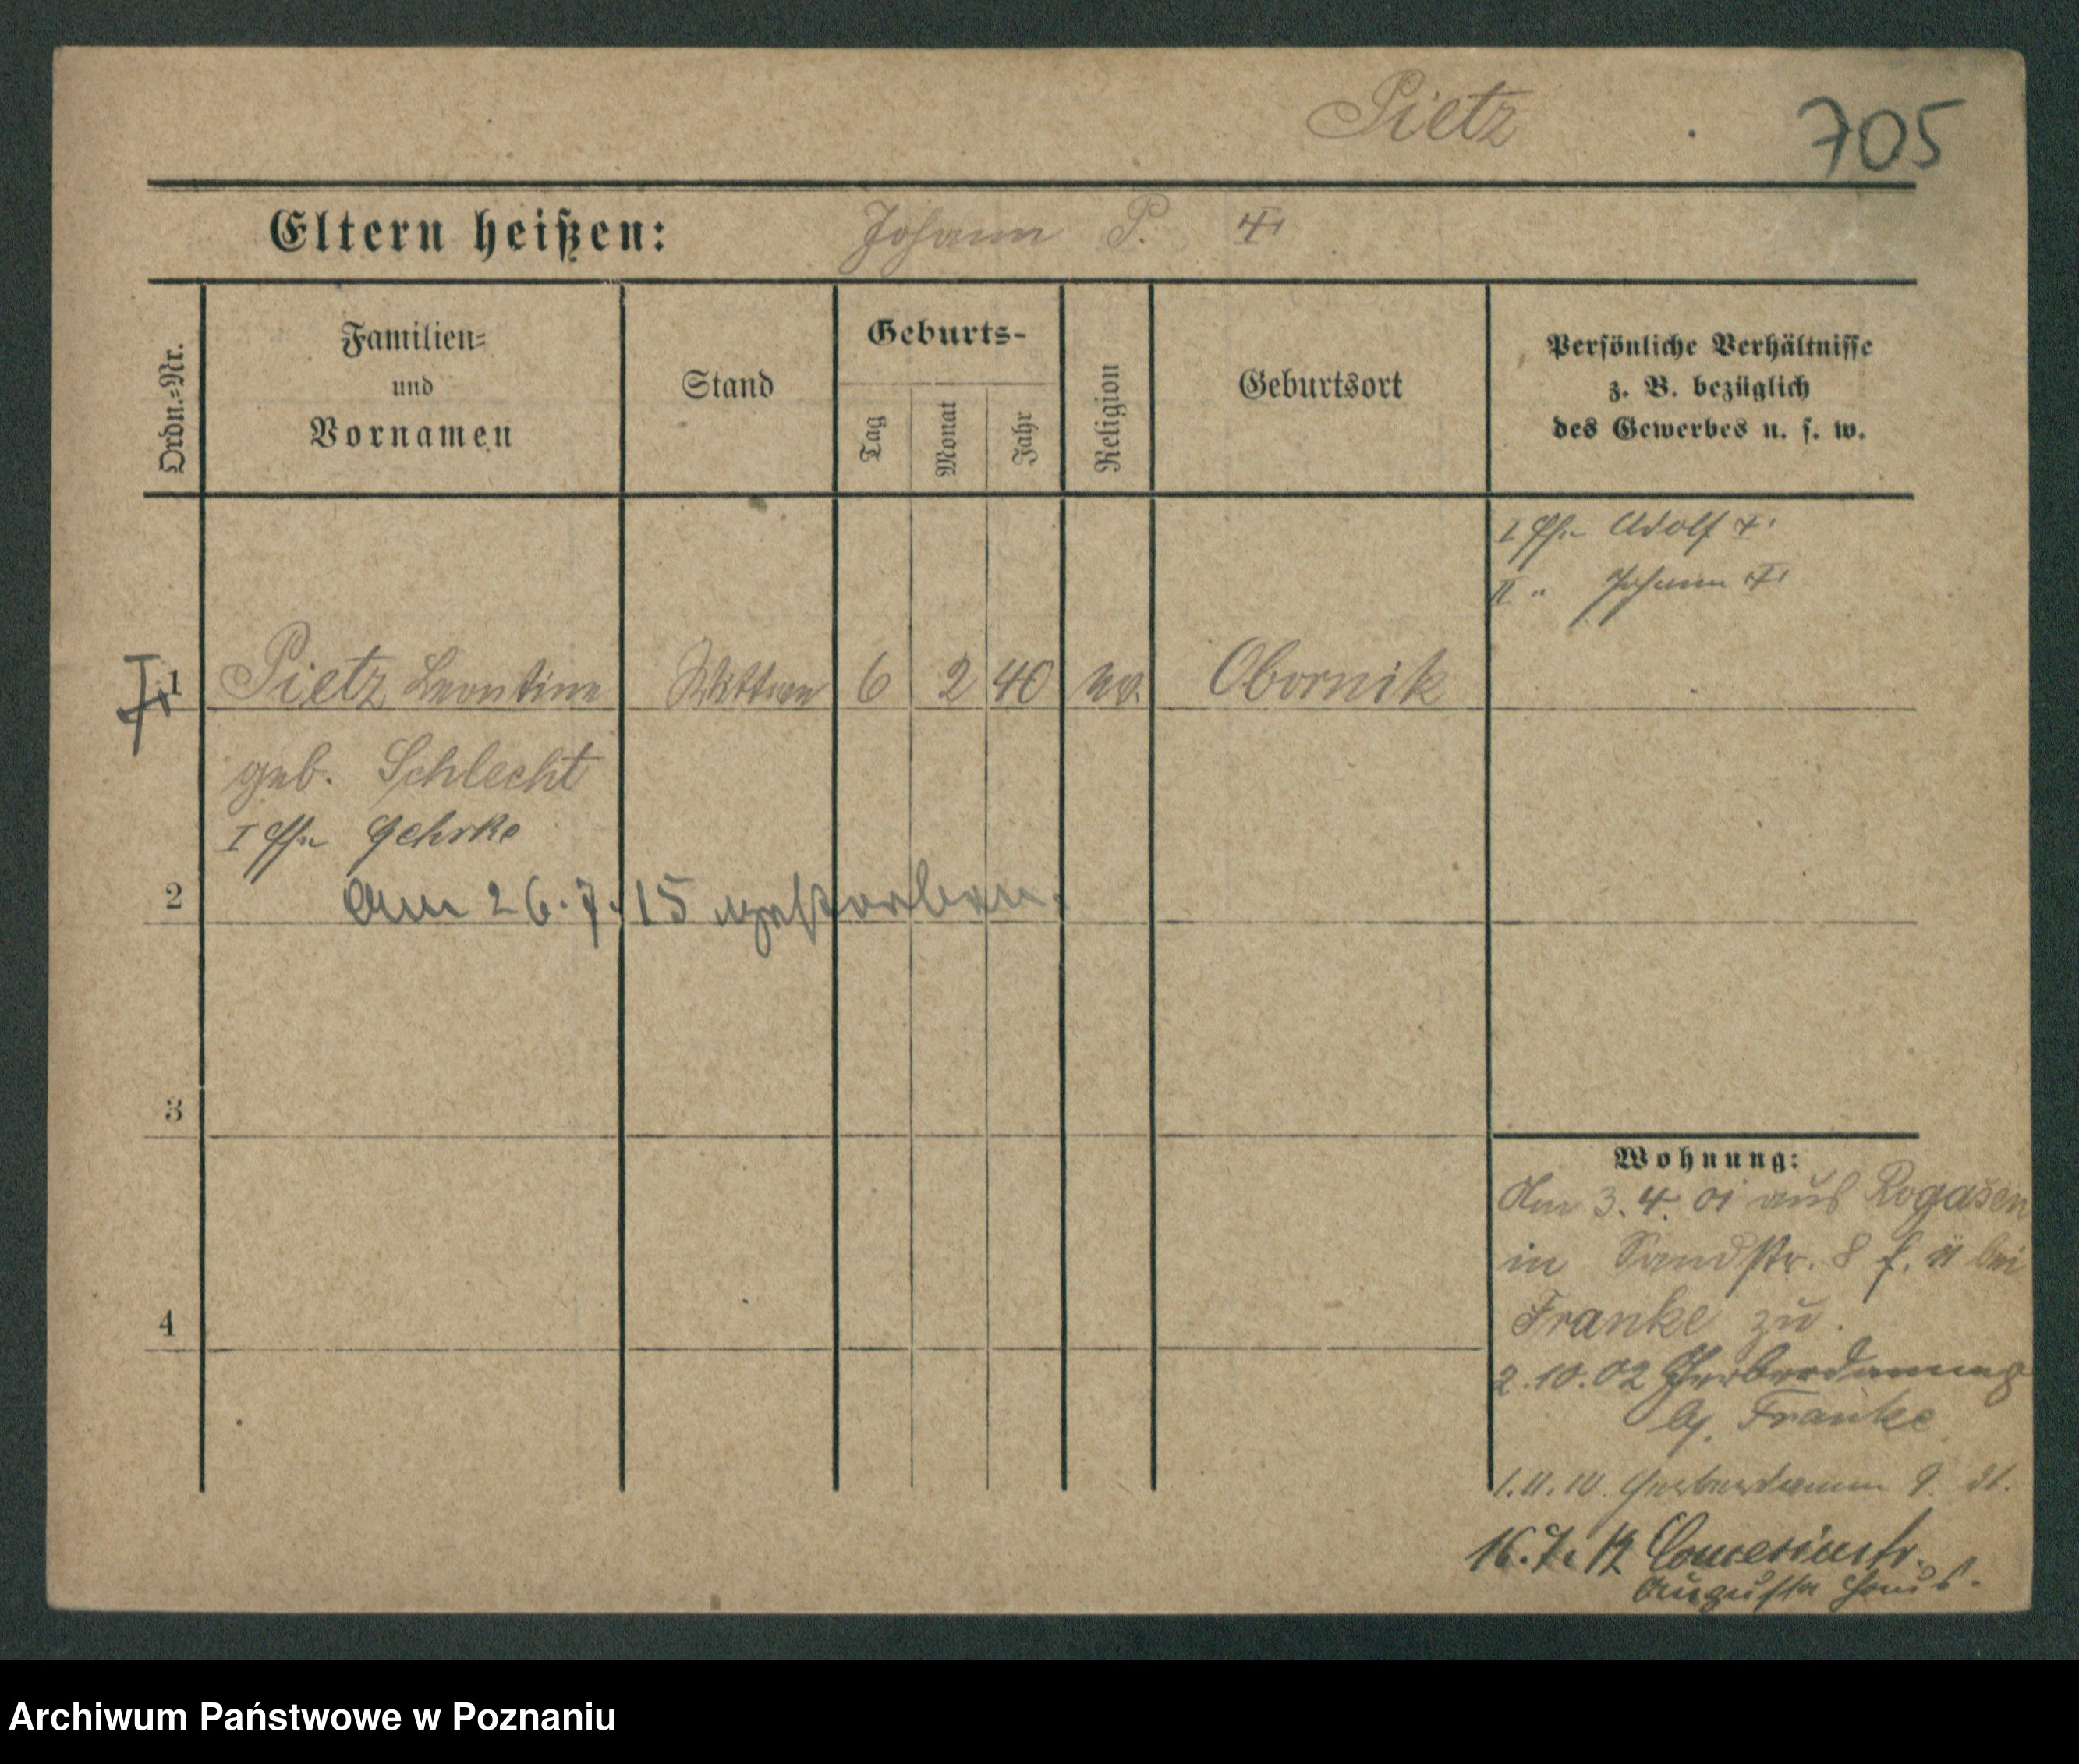 Pietz
705
Eltern heißen: Johann P. †
Ordn.=Nr.
Familien=
und
Vornamen
Stand
Geburts-
Tag
Monat
Jahr
Religion
Geburtsort
Persönliche Verhältnisse
z. B. bezüglich
des Gewerbes u. s. w.
I Ehe Adolf †
II " Johann †
† 1 Pietz Leontine Wittwe 6 2 40 ev. Obornik
geb. Schlecht
I Ehe Gehrke
2 Am 26.7.15 gestorben.
3
4
Wohnung:
Am 3.4.01 aus Rogasen
in Sandstr. 8 f. II bei
Franke zu.
2.10.02 Gerberdamm 9
bei Franke
1.11.10. Gerberdamm 9.
16.7.12
Augusta Haus.
Archiwum Państwowe w Poznaniu